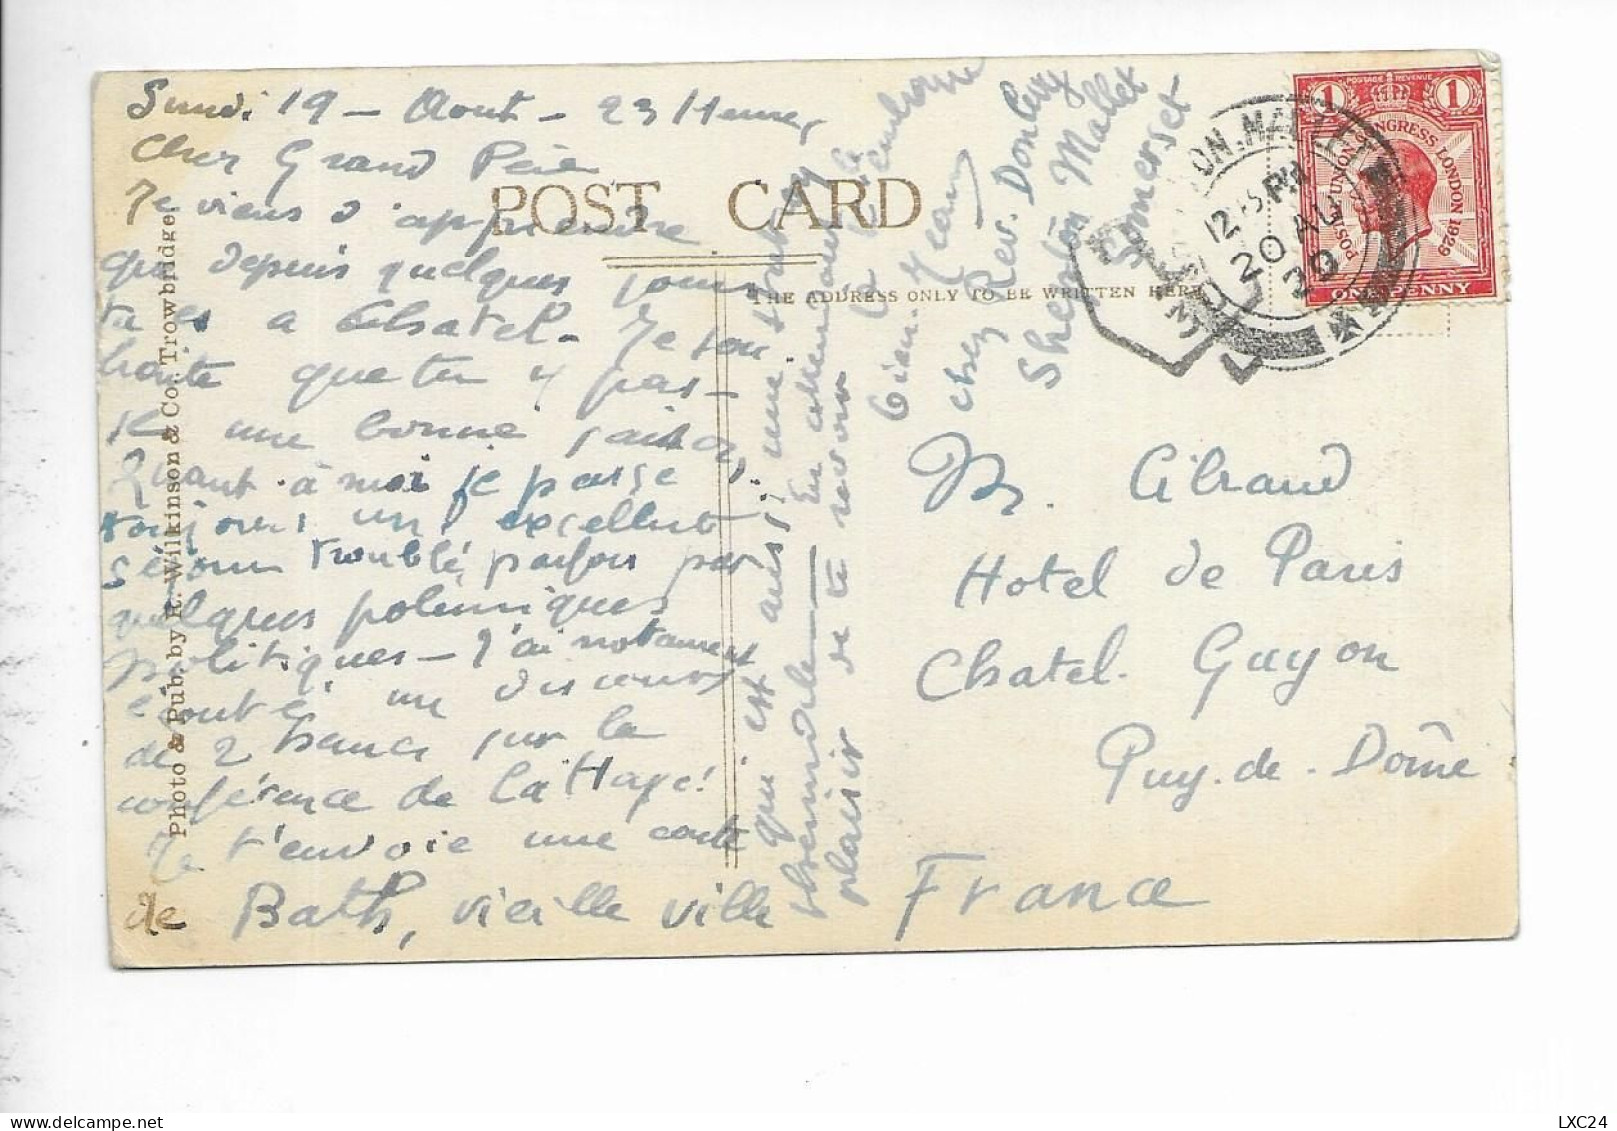 Lundi 19 - Aout - 23 Heures
Cher Grand Père
Je viens d'apprendre
que depuis quelques jours
tu es a Chatel. Je sou
haite que tu y pas-
une bonne saison,
Quant à moi je passe
toujours un excellent
séjour troublé parfois par
quelques polemiques
politiques - J'ai notament
écouté un discours
de 2 heures sur la
conférence de La Haye!
Je t'envoie une carte
de Bath, vieille ville
qui est aussi une
thermale. En attendant le
plaisir de te revoir
Jean
chez Rev. Donleavy
Shepton Mallet
Somerset
POST CARD
THE ADDRESS ONLY TO BE WRITTEN HERE
Photo & Pub. by R. Wilkinson & Co. Trowbridge
M.
Hotel de Paris
Chatel. Guyon
Puy-de-Dôme
France
POSTAGE REVENUE
1 1
POSTAL UNION CONGRESS LONDON 1929
ONE PENNY
TON.MALLET
PM
20 AU
29
LXC24